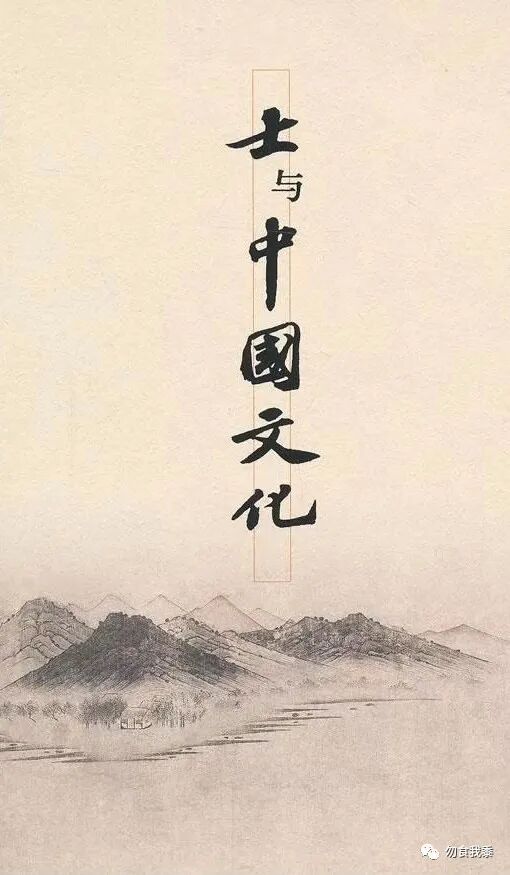 士与中國文化
勿食我黍